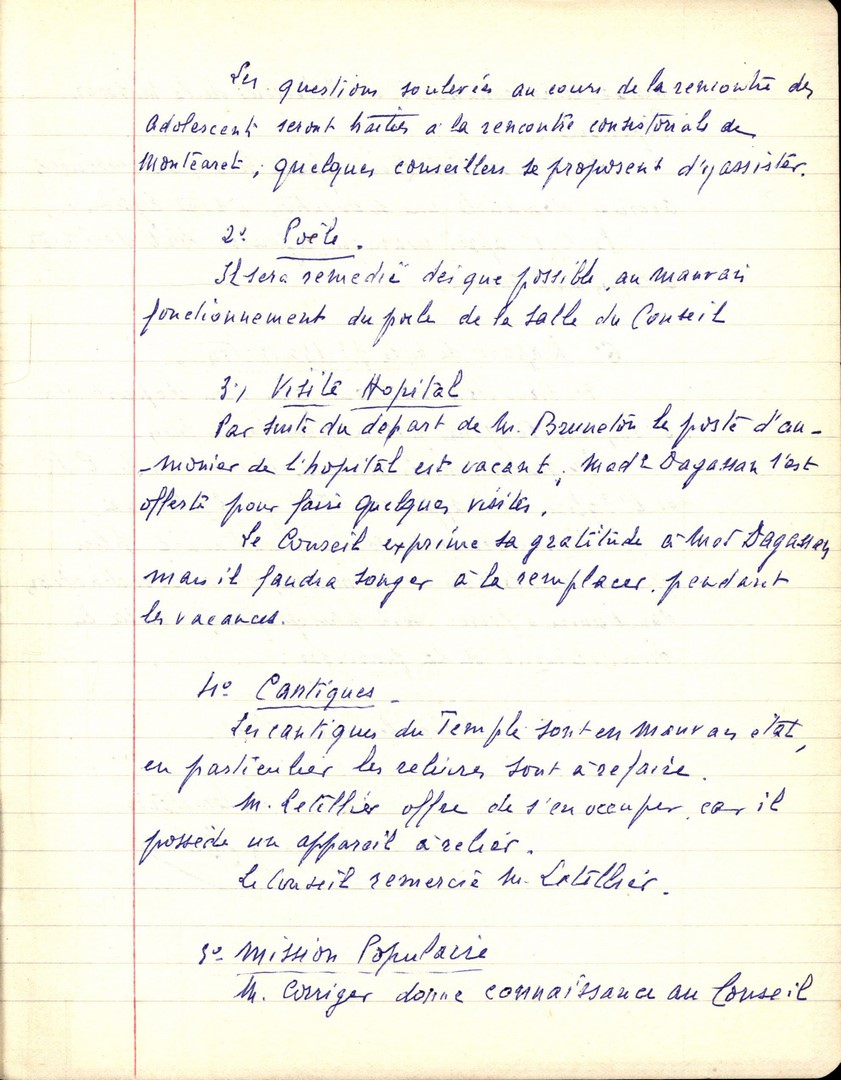 Les questions soulevées au cours de la rencontre des
adolescents seront traitées à la rencontre consistoriale de
Montéaret ; quelques conseillers se proposent d'y assister.
2° Poêle.
Il sera remedié dès que possible, au mauvais
fonctionnement du poele de la salle du Conseil
3°/ Visite Hopital
Par suite du départ de M. Bruneton le poste d'au-
-monier de l'hopital est vacant ; Made Dagassan s'est
offerte pour faire quelques visites.
Le Conseil exprime sa gratitude à Made Dagassan,
mais il faudra songer à la remplacer, pendant
les vacances.
4° Cantiques -
Les cantiques du Temple sont en mauvais état,
en particulier les reliures sont à refaire.
M. Letellier offre de s'en occuper, car il
possède un appareil à relier.
Le Conseil remercie M. Letellier.
5° Mission Populaire
M. Corriger donne connaissance au Conseil